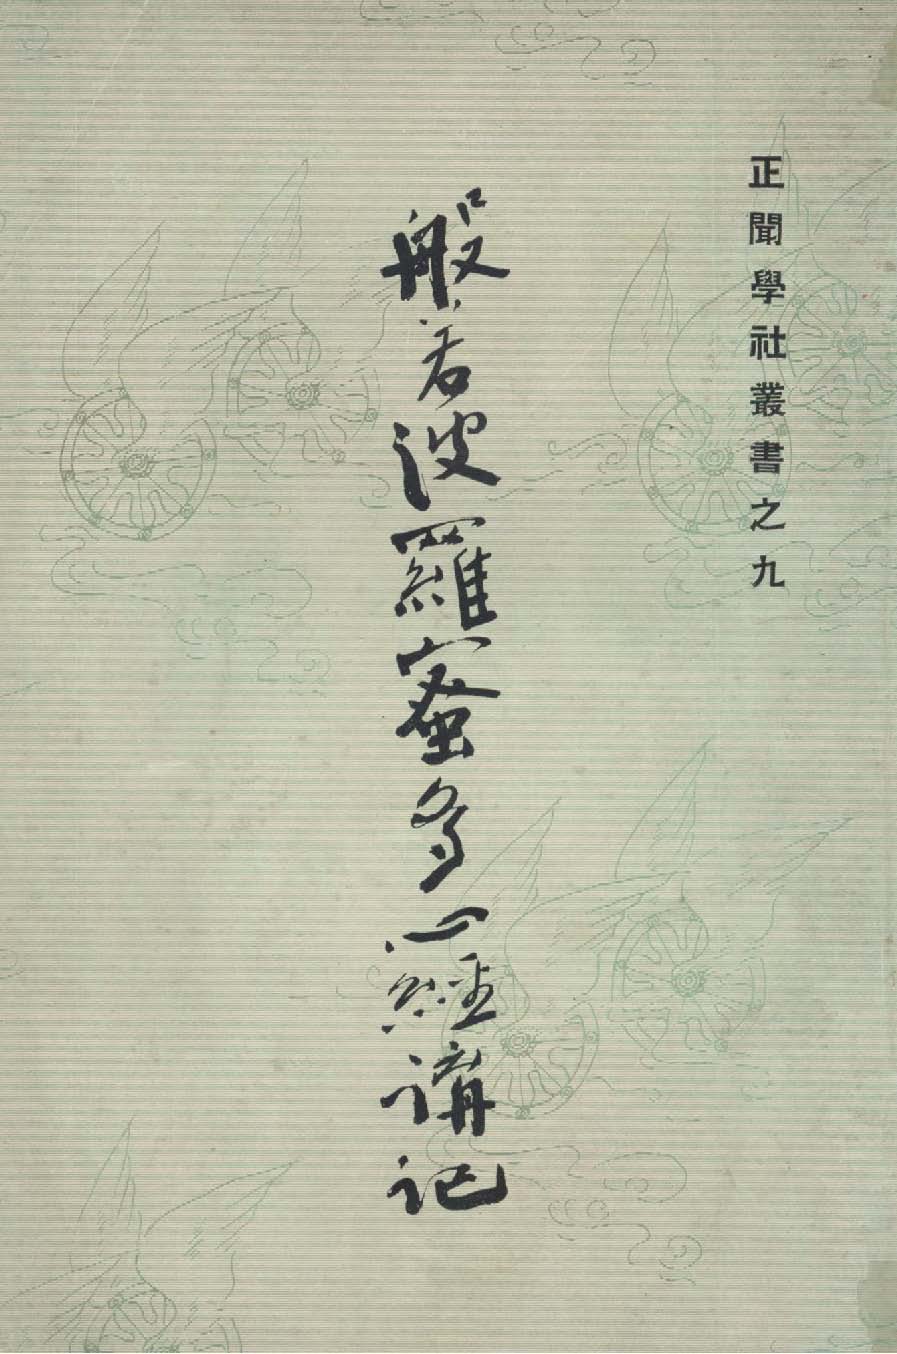 正聞學社叢書之九
般若波羅蜜多心經講記